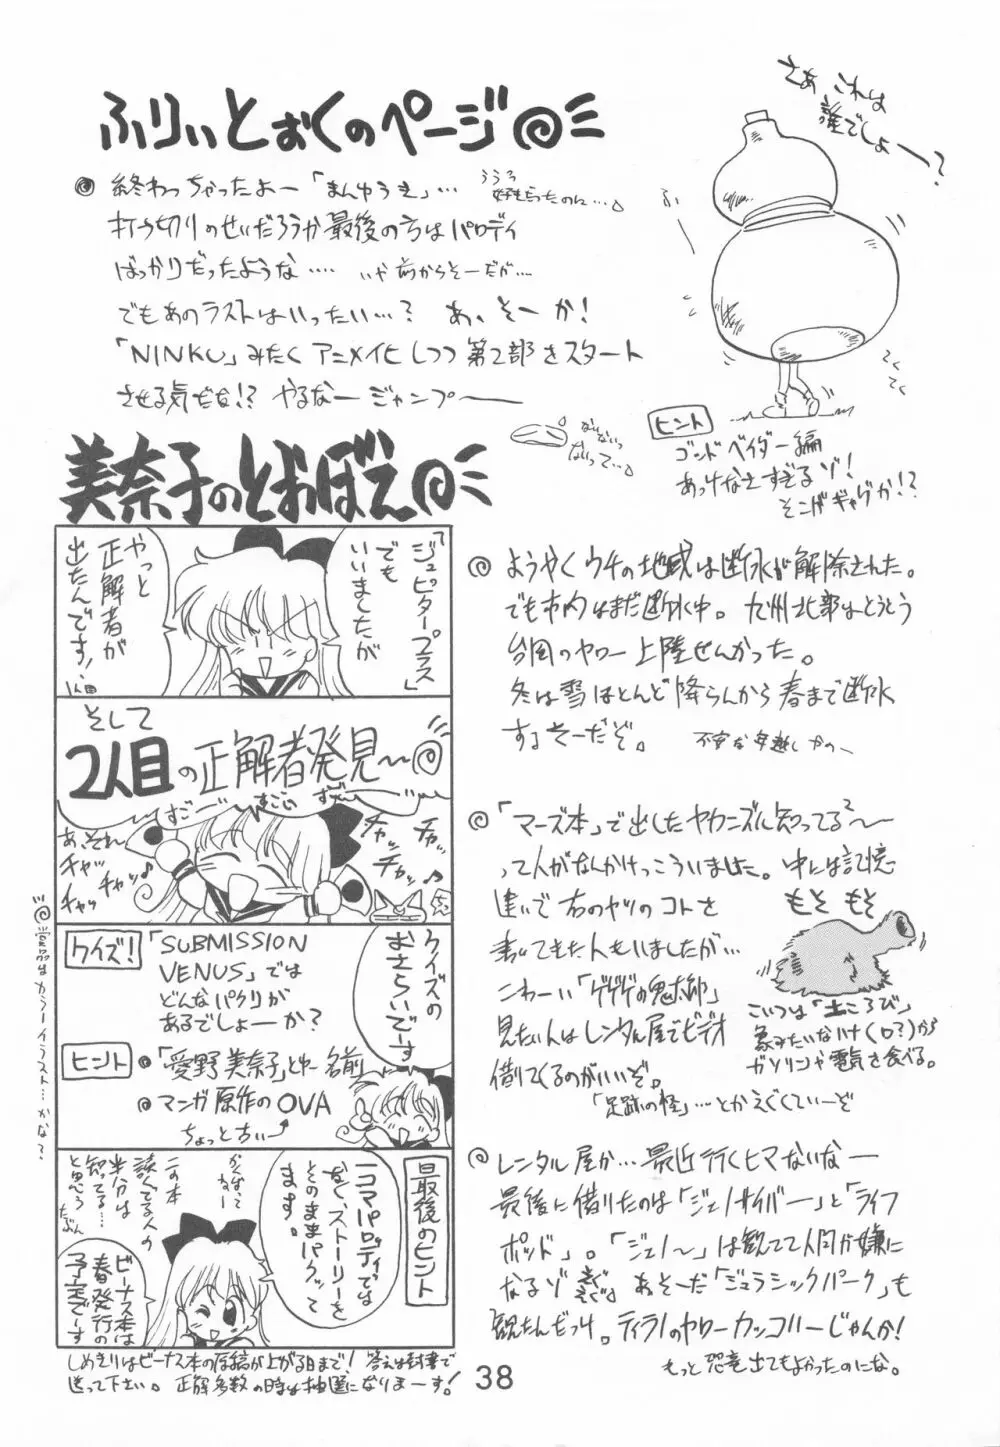 ふりいとおくのページ
終わっちゃったよー「まんゆうき」…
うぅぅ
打ち切りのせいだろうか最後の方はパロディ
ばっかりだったような…… いや前からそーだが…
でもあのラストはいったい…？ あ、そーか！
「NINKU」みたく アニメイ化しつつ 第2部をスタート
させる気だな!? やるなージャンプ——
さあ これは
誰でしょー？
ふー
てくてく
ヒント
ゴンドベイダー編
あっけなさすぎるゾ！
そこがギャグか!?
美奈子のとおぼえ
「ジュピタープラス」
でも
いいましたが
やっと
正解者が
出たんです！
そして
2人目の正解者発見〜
すごーい
すごい
あ、それ
チャッ
チャッ♪
チャッ
チャッ
チャッ
クイズの
おさらいでーす
クイズ！
「SUBMISSION
VENUS」では
どんなパクリが
あるでしょーか？
ヒント
「愛野美奈子」とゆー名前
マンガ原作のOVA
ちょっと古い
最後のヒント
1コマパロディでは
なく、ストーリーを
そのままパクッて
ます。
この本
読んでる人の
半分は
知ってる…
と思う
たぶん
ビーナス本は
春発行の
予定でーす
しめきりはビーナス本の原稿が上がる日まで！ 答えは封書で
送って下さい。 正解多数の時は抽選になりまーす！
賞品はカラーイラスト…かな？
ようやくウチの地域は断水が解除された。
でも市内はまだ断水中。 九州北部はとうとう
台風のヤロー上陸せんかった。
冬は雪ほとんど降らんから春まで断水
するそーだぞ。
「マーズ本」で出したヤカンズル知ってる〜
って人がなんかけっこういました。 中には記憶
違いで右のヤツのコトを
書いてきた人もいましたが…
こわーい「ゲゲゲの鬼太郎」
見たい人はレンタル屋でビデオ
借りてくるのがいいぞ。
「足跡の怪」…とかえぐくていーぞ
もそ もそ
こいつは「土ころび」
象みたいなハナ(口?)から
ガソリンや電気を食べる。
レンタル屋か… 最近行くヒマないなー
最後に借りたのは「ジェノサイバー」と「ライフ
ポッド」。「ジェノ〜」は観てて人間が嫌に
なるゾ あ、そーだ「ジュラシックパーク」も
観たんだっけ。ティラノのヤローカッコいーじゃんか！
もっと恐竜出てもよかったのにな。
38